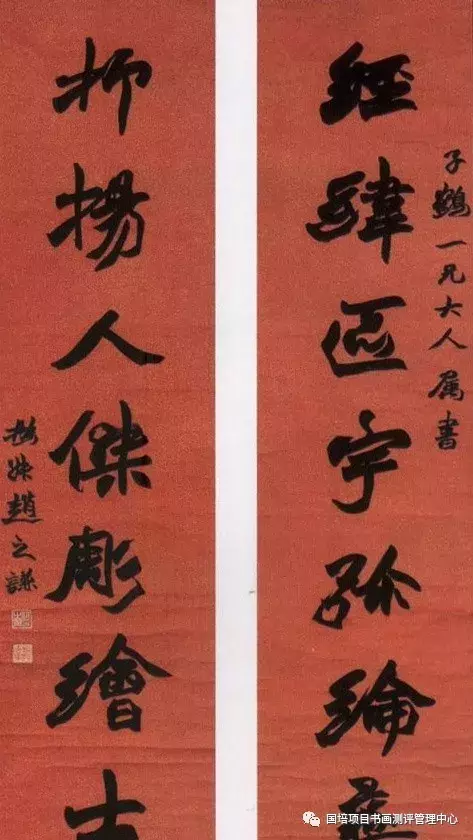 子鶴一兄大人属書
經緯區宇弥綸
抑揚人傑彫繪
撝叔趙之謙
国培项目书画测评管理中心